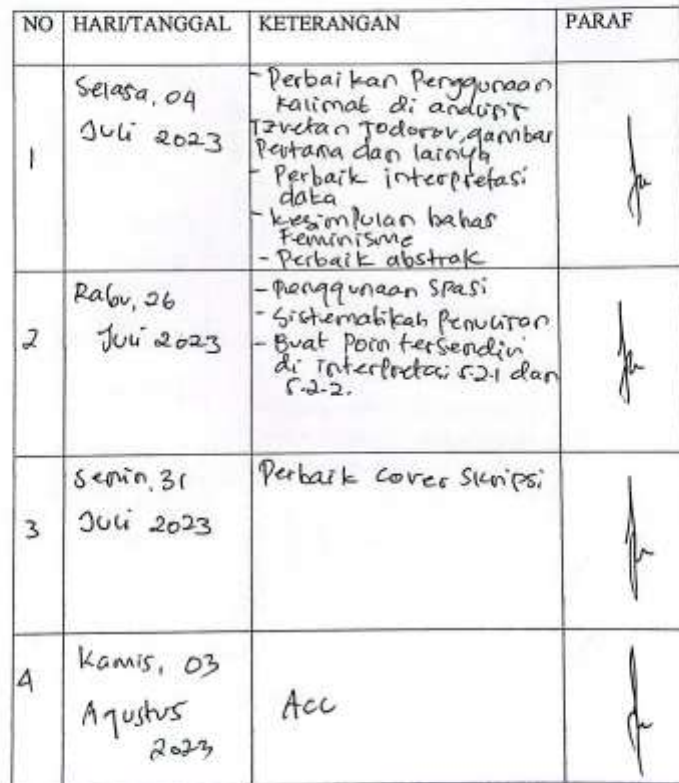 NO HARI/TANGGAL KETERANGAN PARAF
1
Selasa, 04
Juli 2023
- Perbaikan Penggunaan
kalimat di analisis
Tzvetan Todorov, gambar
Pertama dan lainya
- Perbaik interpretasi
data
- kesimpulan bahas
Feminisme
- Perbaik abstrak
2
Rabu, 26
Juli 2023
- penggunaan spasi
- Sistematikah Penulisan
- Buat Poin tersendiri
di interpretasi 5.2.1 dan
5.2.2.
3
Senin, 31
Juli 2023
Perbaik cover Skripsi
4
Kamis, 03
Agustus
2023
Acc